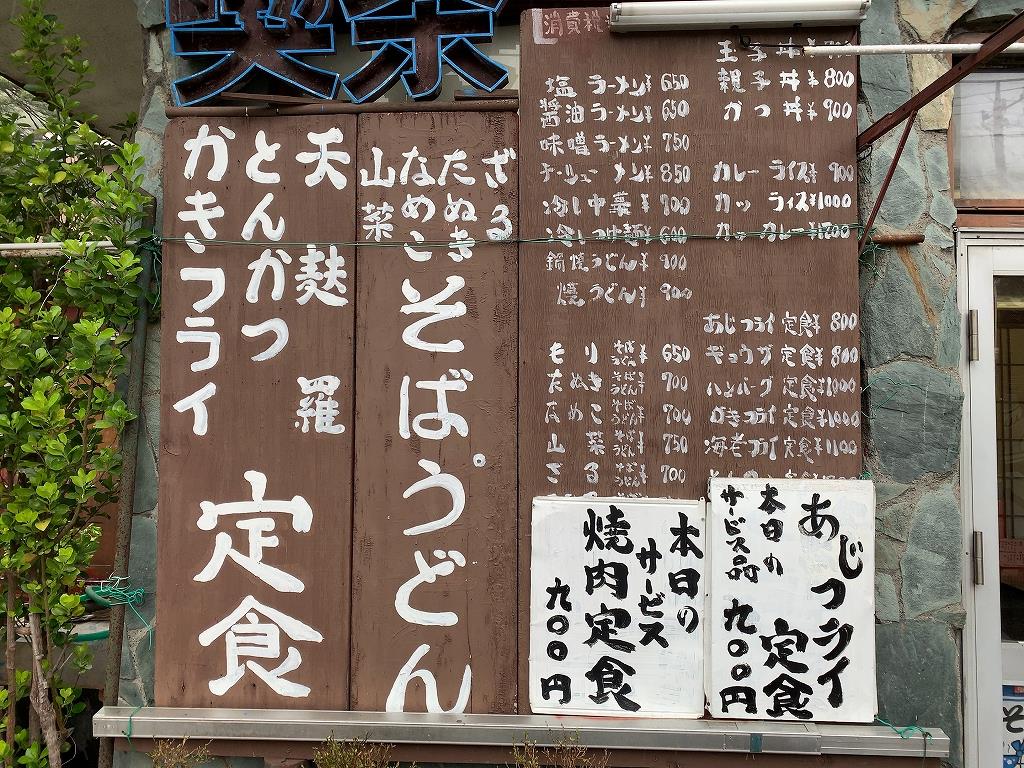 喫茶
消費税
玉子丼¥700
親子丼¥800
かつ丼¥900
カレーライス¥900
カツライス¥1000
カツカレー¥1200
あじフライ定食¥800
ギョウザ定食¥800
ハンバーグ定食¥1000
かきフライ定食¥1000
海老フライ定食¥1100
塩ラーメン¥650
醬油ラーメン¥650
味噌ラーメン¥750
チャーシューメン¥850
冷し中華¥900
冷しつけ麺¥600
鍋焼うどん¥900
焼うどん¥900
もりそばうどん¥650
たぬきそばうどん¥700
なめこそばうどん¥700
山菜そばうどん¥750
ざるそばうどん¥700
ざる
たぬき
なめこ
山菜
そば。うどん
天麩羅
とんかつ
かきフライ
定食
あじフライ定食
本日の
サービス品
九〇〇円
本日の
サービス
焼肉定食
九〇〇円